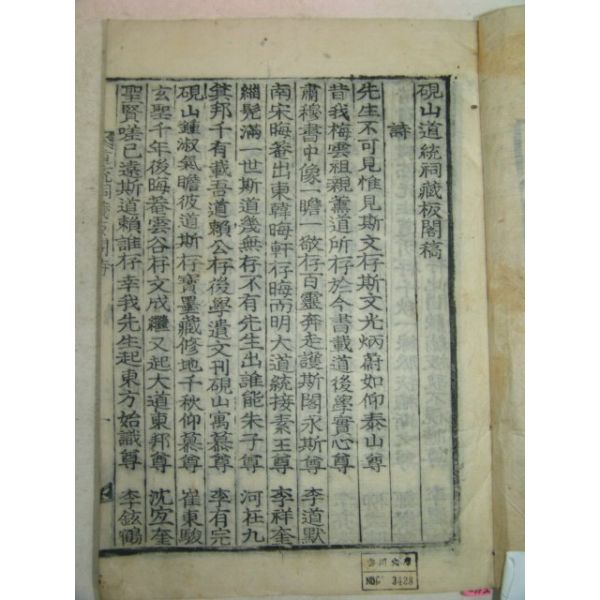 硯山道統祠藏板閣稿
詩
先生不可見惟見斯文存斯文光炳蔚如仰泰山尊
昔我梅雲祖親薰道所存於今書載道後學實心尊 李道默
肅穆書中像一瞻一敬存百靈奔走護斯閣永斯尊
南宋晦菴出東韓晦軒存晦而明大道統接素王尊 李祥奎
緇髡滿一世斯道幾無存不有先生出誰能朱子尊 河在九
箕邦千有載吾道賴公存後學遺文刊硯山寓慕尊 李有完
硯山鍾淑氣瞻彼道斯存寶墨藏修地千秋仰慕尊 崔東駿
玄聖千年後晦菴雲谷存文成繼又起大道東邦尊 沈宜奎
聖賢嗟已遠斯道賴誰存幸我先生起東方始識尊 李鉉鶴
NO 3428